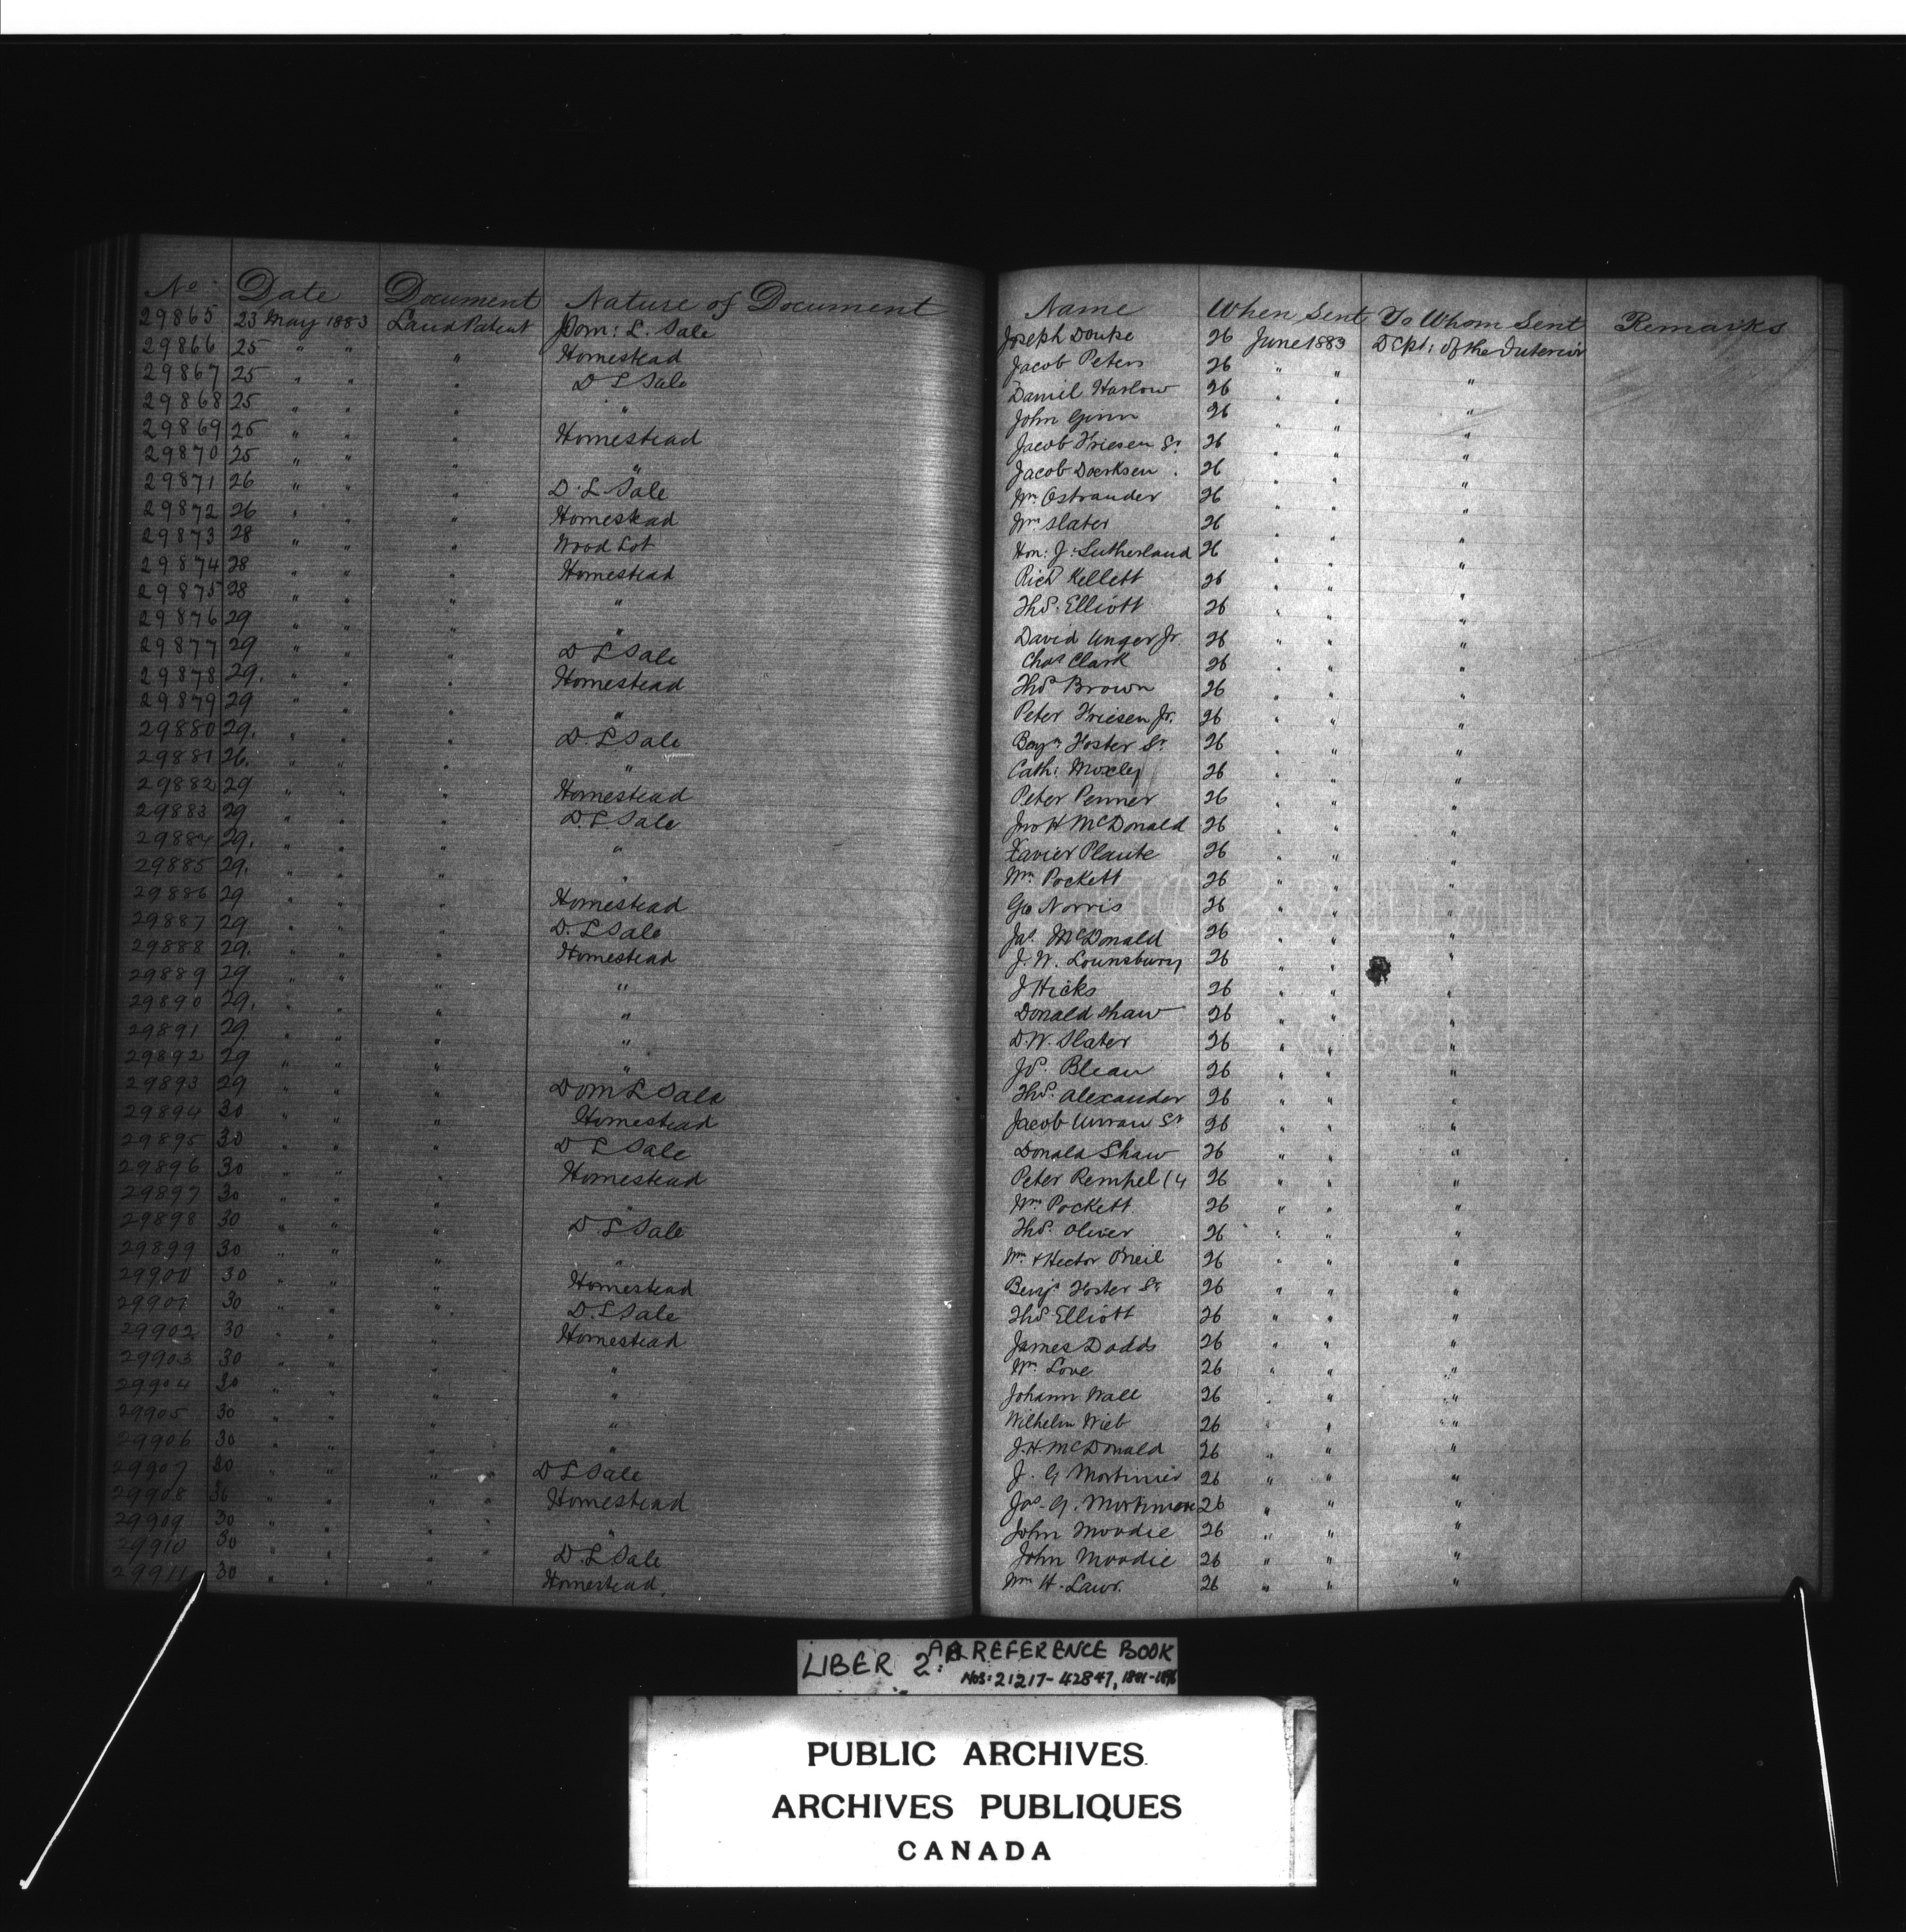 No. Date Document Nature of Document Name When Sent To Whom Sent Remarks
29865 23 May 1883 Land Patent Dom: L. Sale Joseph Douke 26 June 1883 Dept: of the Interior
29866 25 " " " Homestead Jacob Peters 26 " " "
29867 25 " " " D L Sale Daniel Harlow 26 " " "
29868 25 " " " " John Gunn 26 " " "
29869 25 " " " Homestead Jacob Friesen Sr. 26 " " "
29870 25 " " " " Jacob Doerksen 26 " " "
29871 26 " " " D. L Sale Wm Ostrander 26 " " "
29872 26 " " " Homestead Wm Slater 26 " " "
29873 28 " " " Wood Lot Hon: J. Sutherland 26 " " "
29874 28 " " " Homestead Richd Kellett 26 " " "
29875 28 " " " " Thos. Elliott 26 " " "
29876 29 " " " " David Unger Jr. 26 " " "
29877 29 " " " D L Sale Chas Clark 26 " " "
29878 29. " " " Homestead Thos Brown 26 " " "
29879 29 " " " " Peter Friesen Jr. 26 " " "
29880 29. " " " D. L Sale Benjn Foster Sr 26 " " "
29881 26. " " " " Cath: Moxley 26 " " "
29882 29 " " " Homestead Peter Penner 26 " " "
29883 29 " " " D. L. Sale Jno H McDonald 26 " " "
29884 29. " " " " Xavier Plante 26 " " "
29885 29. " " " " Wm Pockett 26 " " "
29886 29 " " " Homestead Geo Norris 26 " " "
29887 29 " " " D. L Sale Jas. McDonald 26 " " "
29888 29. " " " Homestead J. W. Lounsbury 26 " " "
29889 29 " " " " J Hicks 26 " " "
29890 29. " " " " Donald Shaw 26 " " "
29891 29. " " " " D. W. Slater 26 " " "
29892 29 " " " " Jos. Bleau 26 " " "
29893 29 " " " Dom L Sale Thos. Alexander 26 " " "
29894 30 " " " Homestead Jacob Unrau Sr 26 " " "
29895 30 " " " D L Sale Donald Shaw 26 " " "
29896 30 " " " Homestead Peter Rempel (4 26 " " "
29897 30 " " " " Wm Pockett. 26 " " "
29898 30 " " " D L Sale Thos. Oliver 26 " " "
29899 30 " " " " Wm & Hector O'Neil 26 " " "
29900 30 " " " Homestead Benjn Foster Sr 26 " " "
29901 30 " " " D. L Sale Thos Elliott 26 " " "
29902 30 " " " Homestead James Dodds 26 " " "
29903 30 " " " " Wm Love 26 " " "
29904 30 " " " " Johann Wall 26 " " "
29905 30 " " " " Wilhelm Wieb 26 " " "
29906 30 " " " " J. H. McDonald 26 " " "
29907 30 " " " D L Sale J. G Mortimer 26 " " "
29908 30 " " " Homestead Jas. G. Mortimore 26 " " "
29909 30 " " " " John Moodie 26 " " "
29910 30 " " " D. L Sale John Moodie 26 " " "
29911 30 " " " Homestead. Wm H. Lawr. 26 " " "
LIBER 2A: REFERENCE BOOK
NOS: 21217-42847,
PUBLIC ARCHIVES
ARCHIVES PUBLIQUES
CANADA